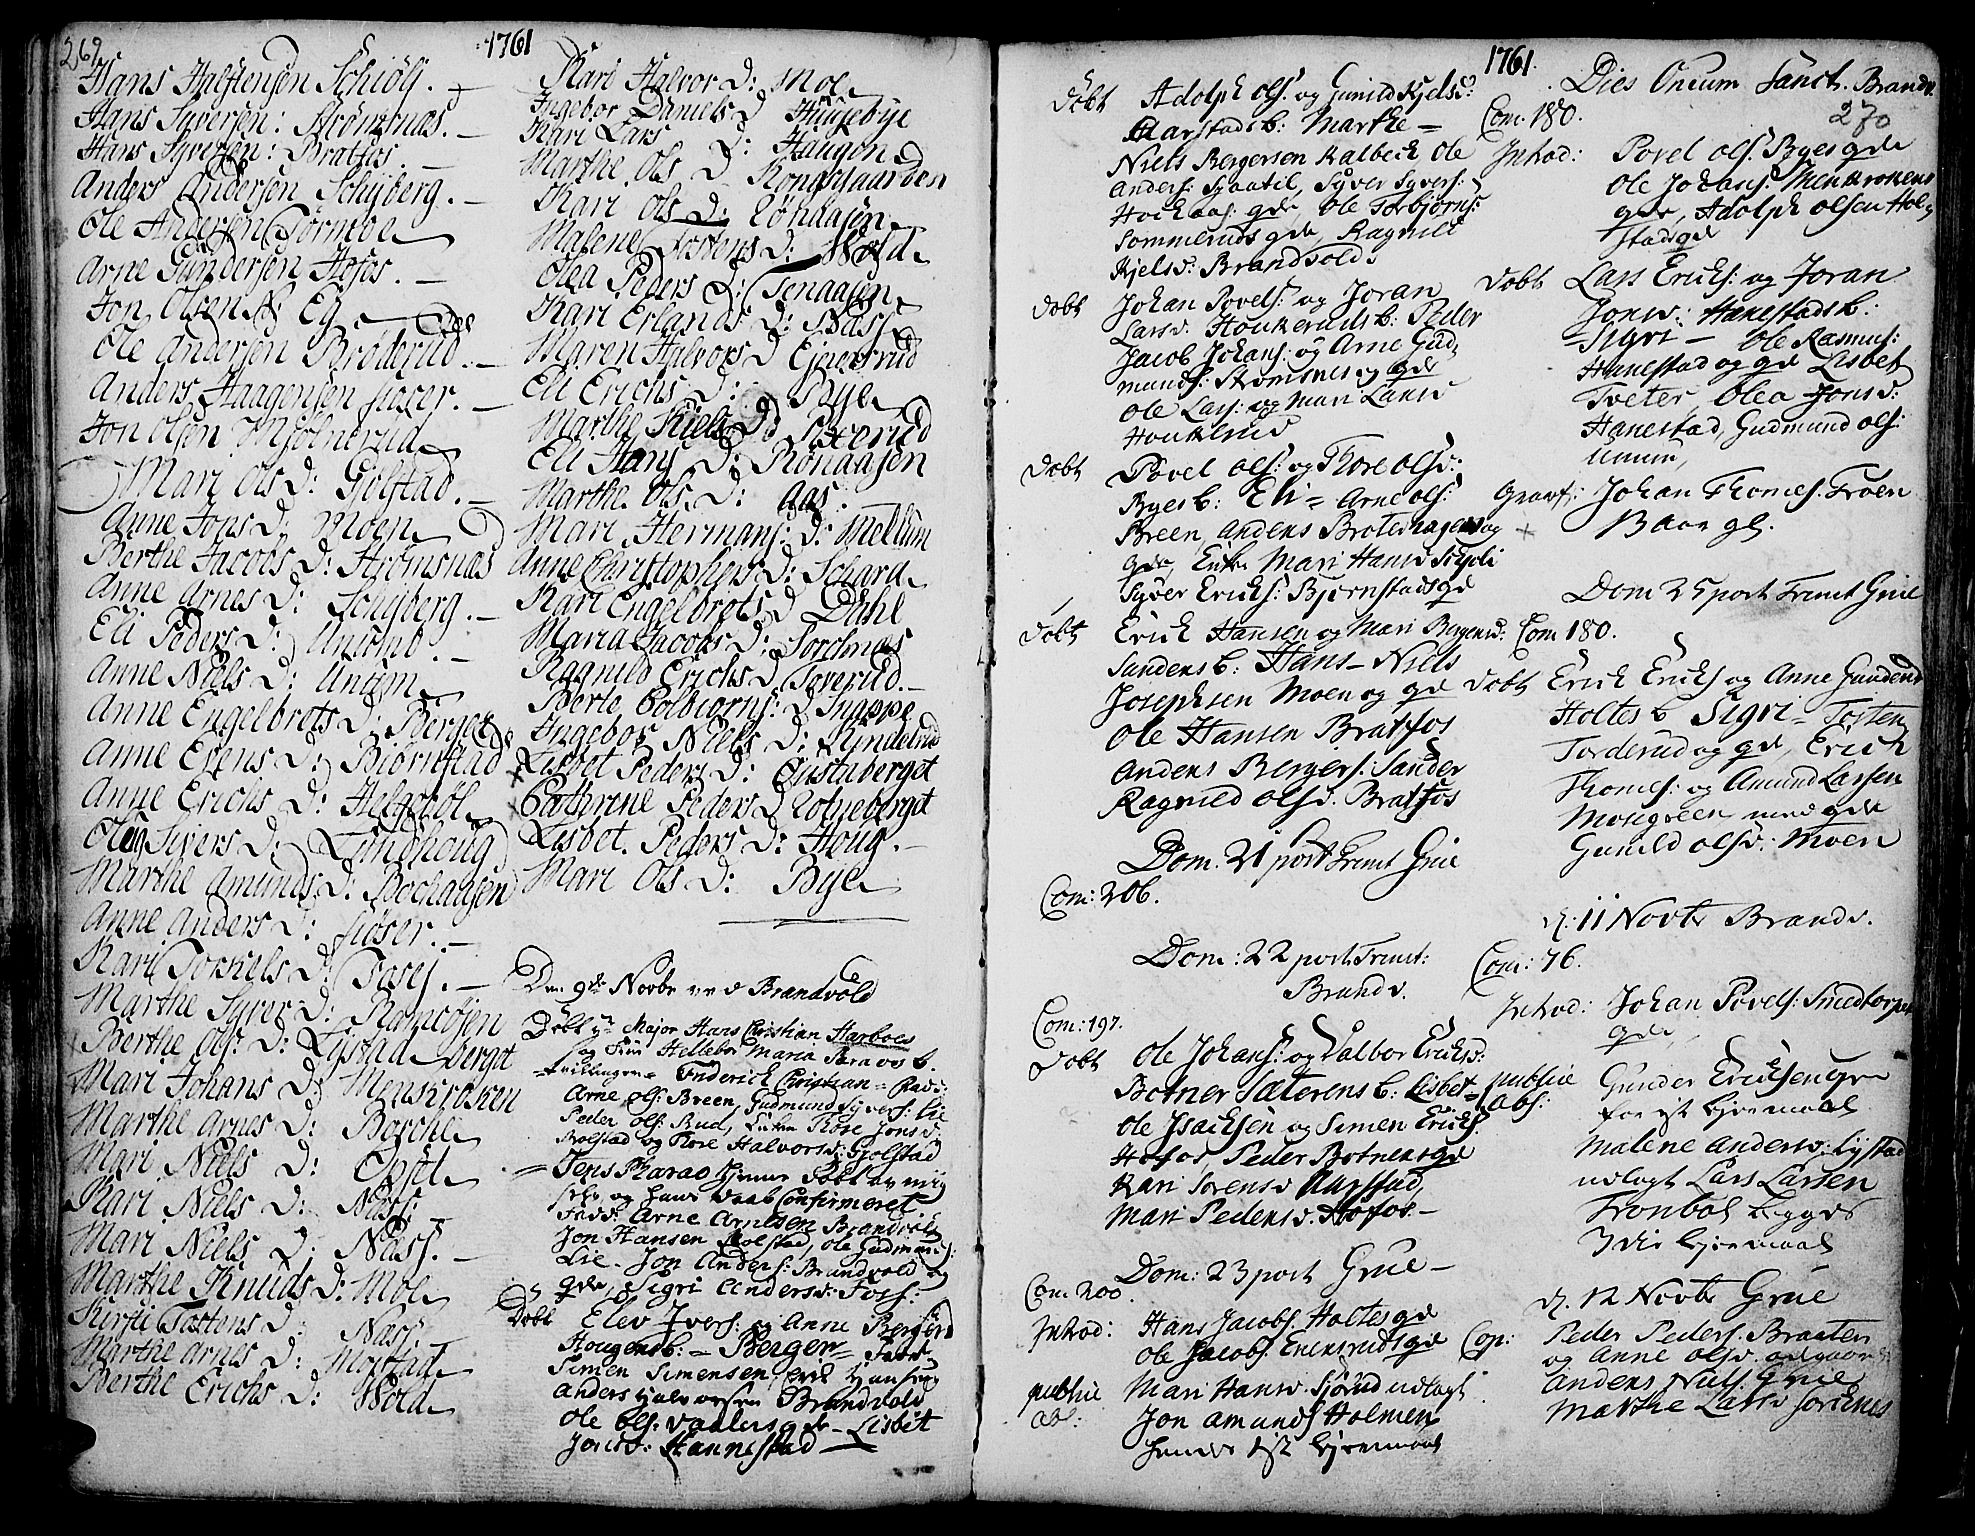 269
1761
Hans Halstensen Schiøli. —
Hans Syversen: Strömsnæs. —
Hans Syversen: Bratfos. —
Anders Andersen Schyberg. —
Ole Andersen Törmoe
Arne Gundersen Hofos. —
Jon Olsen N. Eg
Ole Andersen Bröderud. —
Anders Haagensen Fiøser. —
Jon Olsen Miölnerud
Mari Ols D: Giölstad. —
Anne Jons D: Moen
Berthe Jacobs D: Strömsnæs
Anne Arnes D: Schyberg. —
Eli Peders D:
Anne Niels D: Unum
Anne Engelbrets D: Berget
Anne Evens D: Biörnstad
Anne Erichs D: Helgeböl
Oleg Sivers D: Lindhoug
Marthe Amunds D: Bochaasen
Anne Anders D: Fiöser. —
Kari Torkiels D: —
Marthe Syver D: Ramsöjen
Berthe Ols: D: Lystadberget
Mari Johans D: Menskroken
Marthe Arnes D: Borche
Mari Niels D: Opset
Kari Niels D: Næss. —
Mari Niels D: Næss. —
Marthe Knuds D: Moe
Kirsti Tostens D: Næss.
Marthe Arnes D: Mostad
Berthe Erichs D: Wold
Kari Halvor D: Moe
Ingebor Daniels D Huugebye
Kari Lars D: Haugen
Marthe Ols D Kongsgaarden
Kari Ols D: Rönaasen
Malene Tostens D: Wold
Olea Peders D: Tenaasen
Kari Erlands D: Næss
Maren Halvors D Ejnersrud
Eli Erichs D: Bye
Marthe Kiels D:
Eli Hans D: Rönaasen
Marthe Ols D: Aas
Mari Hermans: D: Mellum
Anne Christophers D: Schara
Kari Engelbrets D Dahl
Maria Jacobs D: Sorknæs
Ragnild Erichs D Toverud. —
Berte Colbiorns: D Knappe
Ingebor Niels D: Ryndelud
Lisbet Peders D: Gustuberget
Cathrine Peders D Lotneberget
Lisbet Peders D: Houg. —
Mari Ols D: Bye
Den 9de Novbr ved Brandvold
Döbt Hr Major Hans Christian Harboes
og Fru Hellebor Maria b.
tvillinger = Friderich Christian = Fad:
Arne Ols: Breen, Gudmund Syvers: Lie
Peder Ols: Rud, Tore Jons d.
Rolstad og Tore Halvors d: Gjolstad
= Jens Pharao hjemme döbt av mig
selv og hans daab Confirmeret
Fadd: Arne Arnesen Brandvold
Jon Hansen Rolstad, Ole Gudmunds:
Lie – Jon Anders: Brandvold og
gde, Sigri Anders d: Foss:
Döbt Elev Ivers: og Anne Bergers d
Hougens b: – Berger = Fadd
Simen Simensen, Erik Hansen
Anders Halvorsen Brandvold
Ole Ols: Vaalers gde – Lisbet
Jons d: Hannestad
1761.
Döbt Adolph Ols: og Gunild Kjels d:
Harstads b: Marthe =
Niels Bergersen Kalbeck Ole
Anders: Syver Syvers:
Hockaas: gde, Ole Torbjörns:
Sommeruds gde, Ragnild
Kjels d: Brandvold
Döbt Johan Povels: og Joran
Lars d: Houkeruds b: Peder
Jacob Johans: og Arne Gud,
munds: Strömsnes og gde
Ole Lars: og Mari Lars d
Houkerud
Döbt Povel Ols: og Thore Ols d:
Byes b: Eli = Arne Ols:
Breen, Anders Broterhagens og
gde, Mari Hans d Schjoli
Syver Ericks: Bjornstads gde
Döbt Erick Hansen og Mari Bergers d:
Sandens b: Hans – Niels
Josephsen Moen og gde
Ole Hansen Bratfos
Anders Bergers: Sander
Ragnild Ols d: Bratfos
Dom: 21 post Trinit Grue
Com: 206.
Dom: 22 post Trinit:
Brandv.
Com: 197.
Döbt Ole Johans: og Valbor Ericks d:
Botner Sæterens b: Lisbet =
Ole Isacksen og Simen Ericks:
Hofos Peder Botnens gde
Kari Sörens d Aarstad,
Mari Peders d. Hofos –
Dom: 23 post Grue –
Com: 200.
Introd: Hans Jacobs: Holtes gde
Ole Jacobs: Evensruds gde
publice abs: Mari Hans d. Sjörud udlagt
Jon Amunds Holmen
hendes 1st lejermaal
Dies Omnium Sanct. Brandv.
270
Com. 180.
Introd: Povel Ols. Byes gde
Ole Johans: Menkrokens
gde, Adolph Olsen Hol,
stads gde
Döbt Lars Ericks: og Joran
Jons d: Hanestads b:
Sigri – Ole Rasmus:
Hanestad og gde Lisbet
Tveter, Olea Jons d:
Hanestad, Gudmund Ols:
Unum,
Gravf: Johan Thomes: Froen
Baar gl.
Dom 25 post Trinit Grue
Com 180.
Döbt Erick Ericks og Anne Gunders d
Holtes b Sigri – Tosten
Torderud og gde, Erick
Thomes: og Amund Larsen
Mosegreen med gde
Gunild Ols d: Moen
d. 11 Novbr Brandv.
Com: 76.
Introd: Johan Povels: Smedtorpet
gde,
publice abs: Gunder Ericksen Gr
for 1st lejermaal
Malene Anders d: Lystad
udlagt Lars Larsen
Tronböl begges
3die lejermaal
d. 12 Novbr Grue
Cop: Peder Peders: Braaten
og Anne Ols d.
Anders Niels: Grue
Marthe Lars d Sorknes